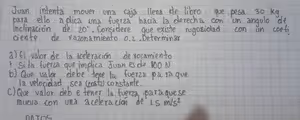 Juan intenta mover una caja llena de libro que pesa 30 kg
para ello aplica una fuerza hacia la derecha con un angulo de
inclinación del 20°. Considere que existe rugosidad con un coefi
ciente de rozonamiento 0.2. Determinar
a) El valor de la aceleración de rozamiento
t si la fuerza que implica Juan es de 100 N
b) Que valor debe tener la fuerza para que
la velocidad sea constante.
c) Que valor debe tener la fuerza para que se
mueva con una aceleración de 1.5 m/s²
DATOS